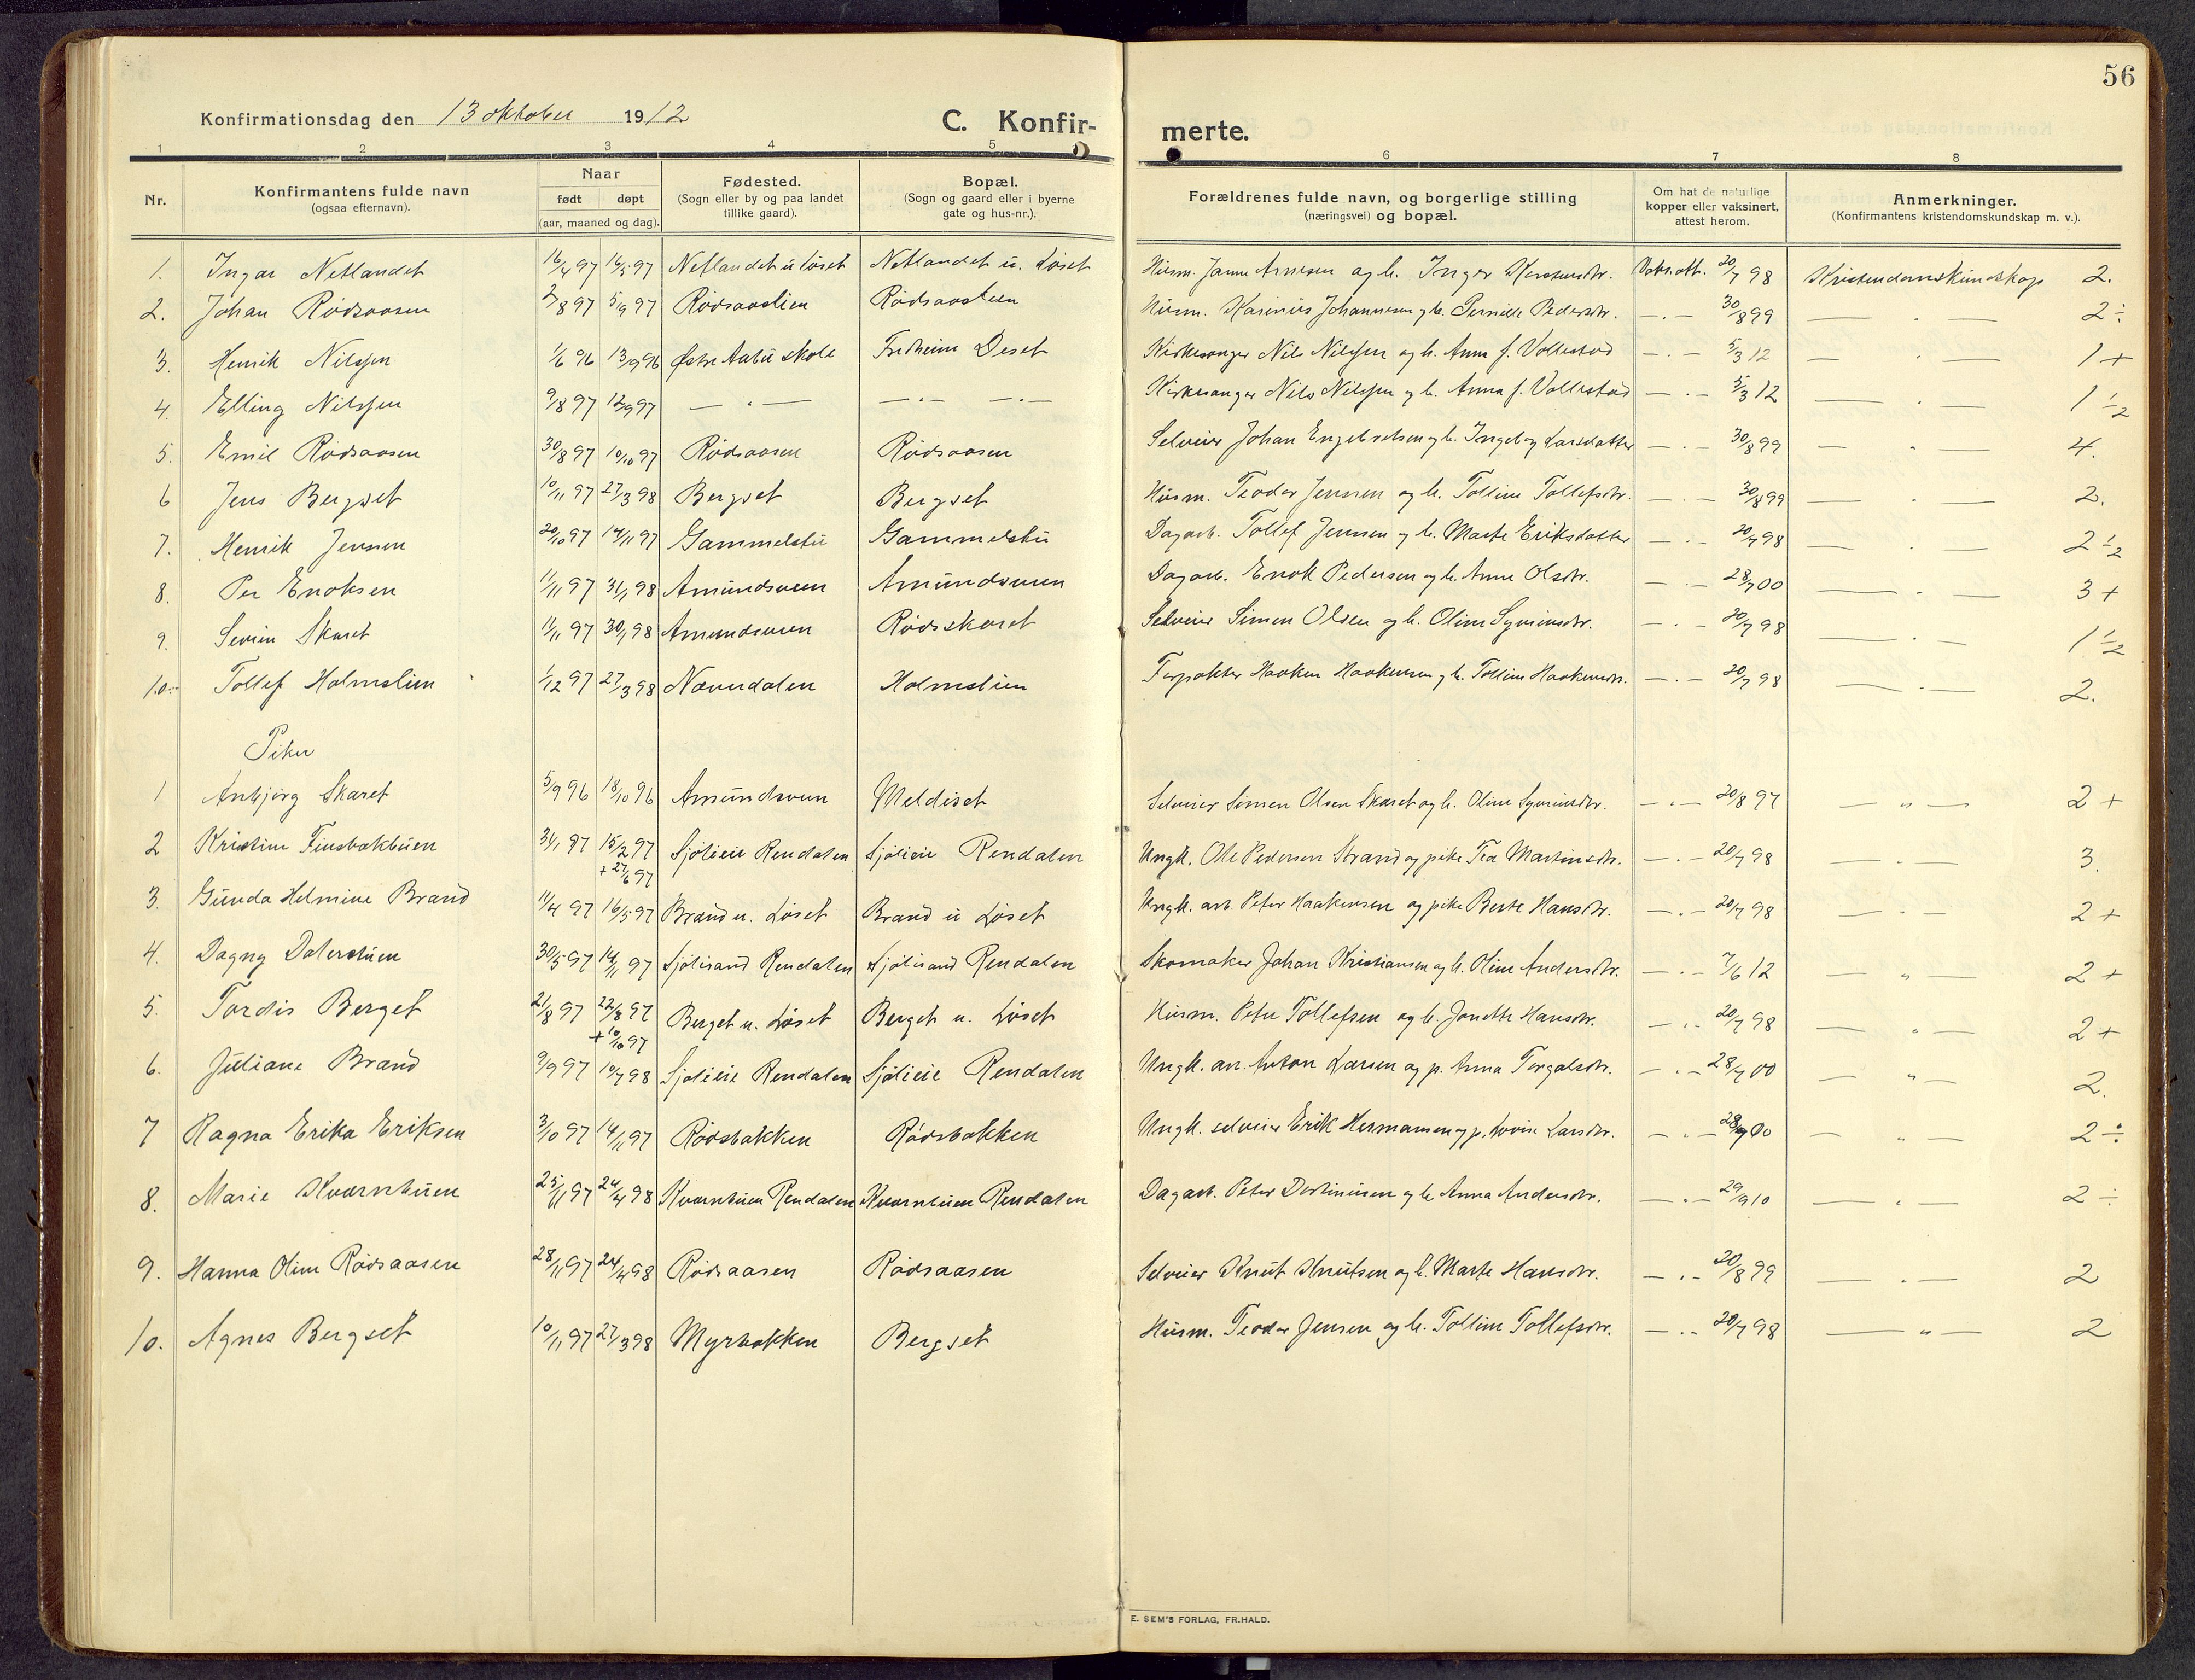 56
Konfirmationsdag den 13 oktober 1912
C. Konfir-
merte.
1 2 3 4 5 6 7 8
Nr.
Konfirmantens fulde navn
(ogsaa efternavn).
Naar
født døpt
(aar, maaned og dag).
Fødested.
(Sogn eller by og paa landet
tillike gaard).
Bopæl.
(Sogn og gaard eller i byerne
gate og hus-nr.).
Forældrenes fulde navn, og borgerlige stilling
(næringsvei) og bopæl.
Om hat de naturlige
kopper eller vaksinert,
attest herom.
Anmerkninger.
(Konfirmantens kristendomskundskap m. v.).
1. Ingar Netlandet 16/4 97 16/5 97 Netlandet u. Løset Netlandet u. Løset Husm. Arnesen og h. Inger Vaks.att. 20/7 98 Kristendomskundskap 2.
2. Johan Rødsaasen 2/8 97 5/9 97 Rødsaaslien Rødsaaslien Husm. Karinius Johannesen og h. Pernille Pedersdtr. — . — 30/8 99 — . — 2 ÷
3. Henrik Nilssen 1/6 96 13/9 96 Østre Aabu skole Fredheim Deset Kirkesanger Nils Nilssen og h. Anna f. Vollestad — . — 5/3 12 — . — 1 +
4. Elling Nilssen 9/8 97 12/9 97 — . — — . — — . — Kirkesanger Nils Nilssen og h. Anna f. Vollestad — . — 5/3 12 — . — 1 ½
5. Emil Rødsaasen 30/8 97 10/10 97 Rødsaasen Rødsaasen Selveier Johan Engebretsen og h. Ingeborg Larsdatter — . — 30/8 99 — . — 4.
6 Jens Bergset 10/11 97 27/3 98 Bergset Bergset Husm. Teodor Jensen og h. Tolline Tollefsdtr. — . — 30/8 99 — . — 2.
7. Henrik Jensen 20/10 97 14/11 97 Gammelstu Gammelstu Dagarb. Tollef Jensen og h. Marte Eriksdatter — . — 20/7 98 — . — 2 ½
8. Per Enoksen 11/11 97 31/1 98 Amundsveen Amundsveen Dagarb. Enok Pedersen og h. Anne Olsdtr. — . — 28/7 00 — . — 3 +
9. Sevrin Skaret 11/11 97 30/1 98 Amundsveen Rødsskaret Selveier Simen Olsen og h. Oline Syverinsdtr. — . — 20/7 98 — . — 1 ½
10. Tollef Holmslien 1/12 97 27/3 98 Nævndalen Holmslien Forpakter Haaken Haakensen og h. Tolline Haakensdtr. — . — 20/7 98 — . — 2.
Piker
1 Anbjørg Skaret 5/9 96 18/10 96 Amundsveen Meldiset Selveier Simen Olsen Skaret og h. Oline Syverinsdtr. — . — 20/8 97 — „ — 2 +
2 Kristine Finsbakbuen 31/1 97 15/2 97 Sjølieie Rendalen Sjølieie Rendalen Ungk. Ole Pedersen Strand og pike Tea Martinsdtr. — . — 20/7 98 — . — 3.
+ 27/6 97
3. Gunda Helmine Brand 11/4 97 16/5 97 Brand u. Løset Brand u Løset Ungk. arb. Peter Haakensen og pike Berte Hansdtr. — . — 20/7 98 — . — 2 +
4. Dagny Dalerstuen 30/5 97 14/11 97 Sjølisand Rendalen Sjølisand Rendalen Skomaker Johan Kristiansen og h. Oline Andersdtr. — . — 7/6 12 — „ — 2 +
5. Tordis Berget 21/8 97 22/8 97 Berget u. Løset Berget u. Løset Husm. Peter Tollefsen og h. Jonette Hansdtr. — . — 20/7 98 — „ — 2 +
+ 10/10 97
6. Juliane Brand 9/9 97 10/7 98 Sjølieie Rendalen Sjølieie Rendalen Ungk. arb. Anton Larsen og p. Anna Torgalsdtr. — . — 28/7 00 — „ — 2.
7 Ragna Erika Eriksen 3/10 97 14/11 97 Rødsbakken Rødsbakken Ungk. selveier Erik Hermansen og p. Lovise Larsdtr. — . — 28/7 00 — „ — 2 ÷
8. Marie Kværnbuen 25/11 97 24/4 98 Kværnbuen Rendalen Kværnbuen Rendalen Dagarb. Peter Dortinusen og h. Anna Andersdtr. — . — 29/9 10 — „ — 2 ÷
9. Hanna Oline Rødsaasen 28/11 97 24/4 98 Rødsaasen Rødsaasen Selveier Knut Knutsen og h. Marte Hansdtr. — . — 20/8 99 — . — 2
10. Agnes Bergset 10/11 97 27/3 98 Myrbakken Bergset Husm. Teodor Jensen og h. Tolline Tollefsdtr. — . — 20/7 98 — „ — 2
E. SEM'S FORLAG, FR.HALD.